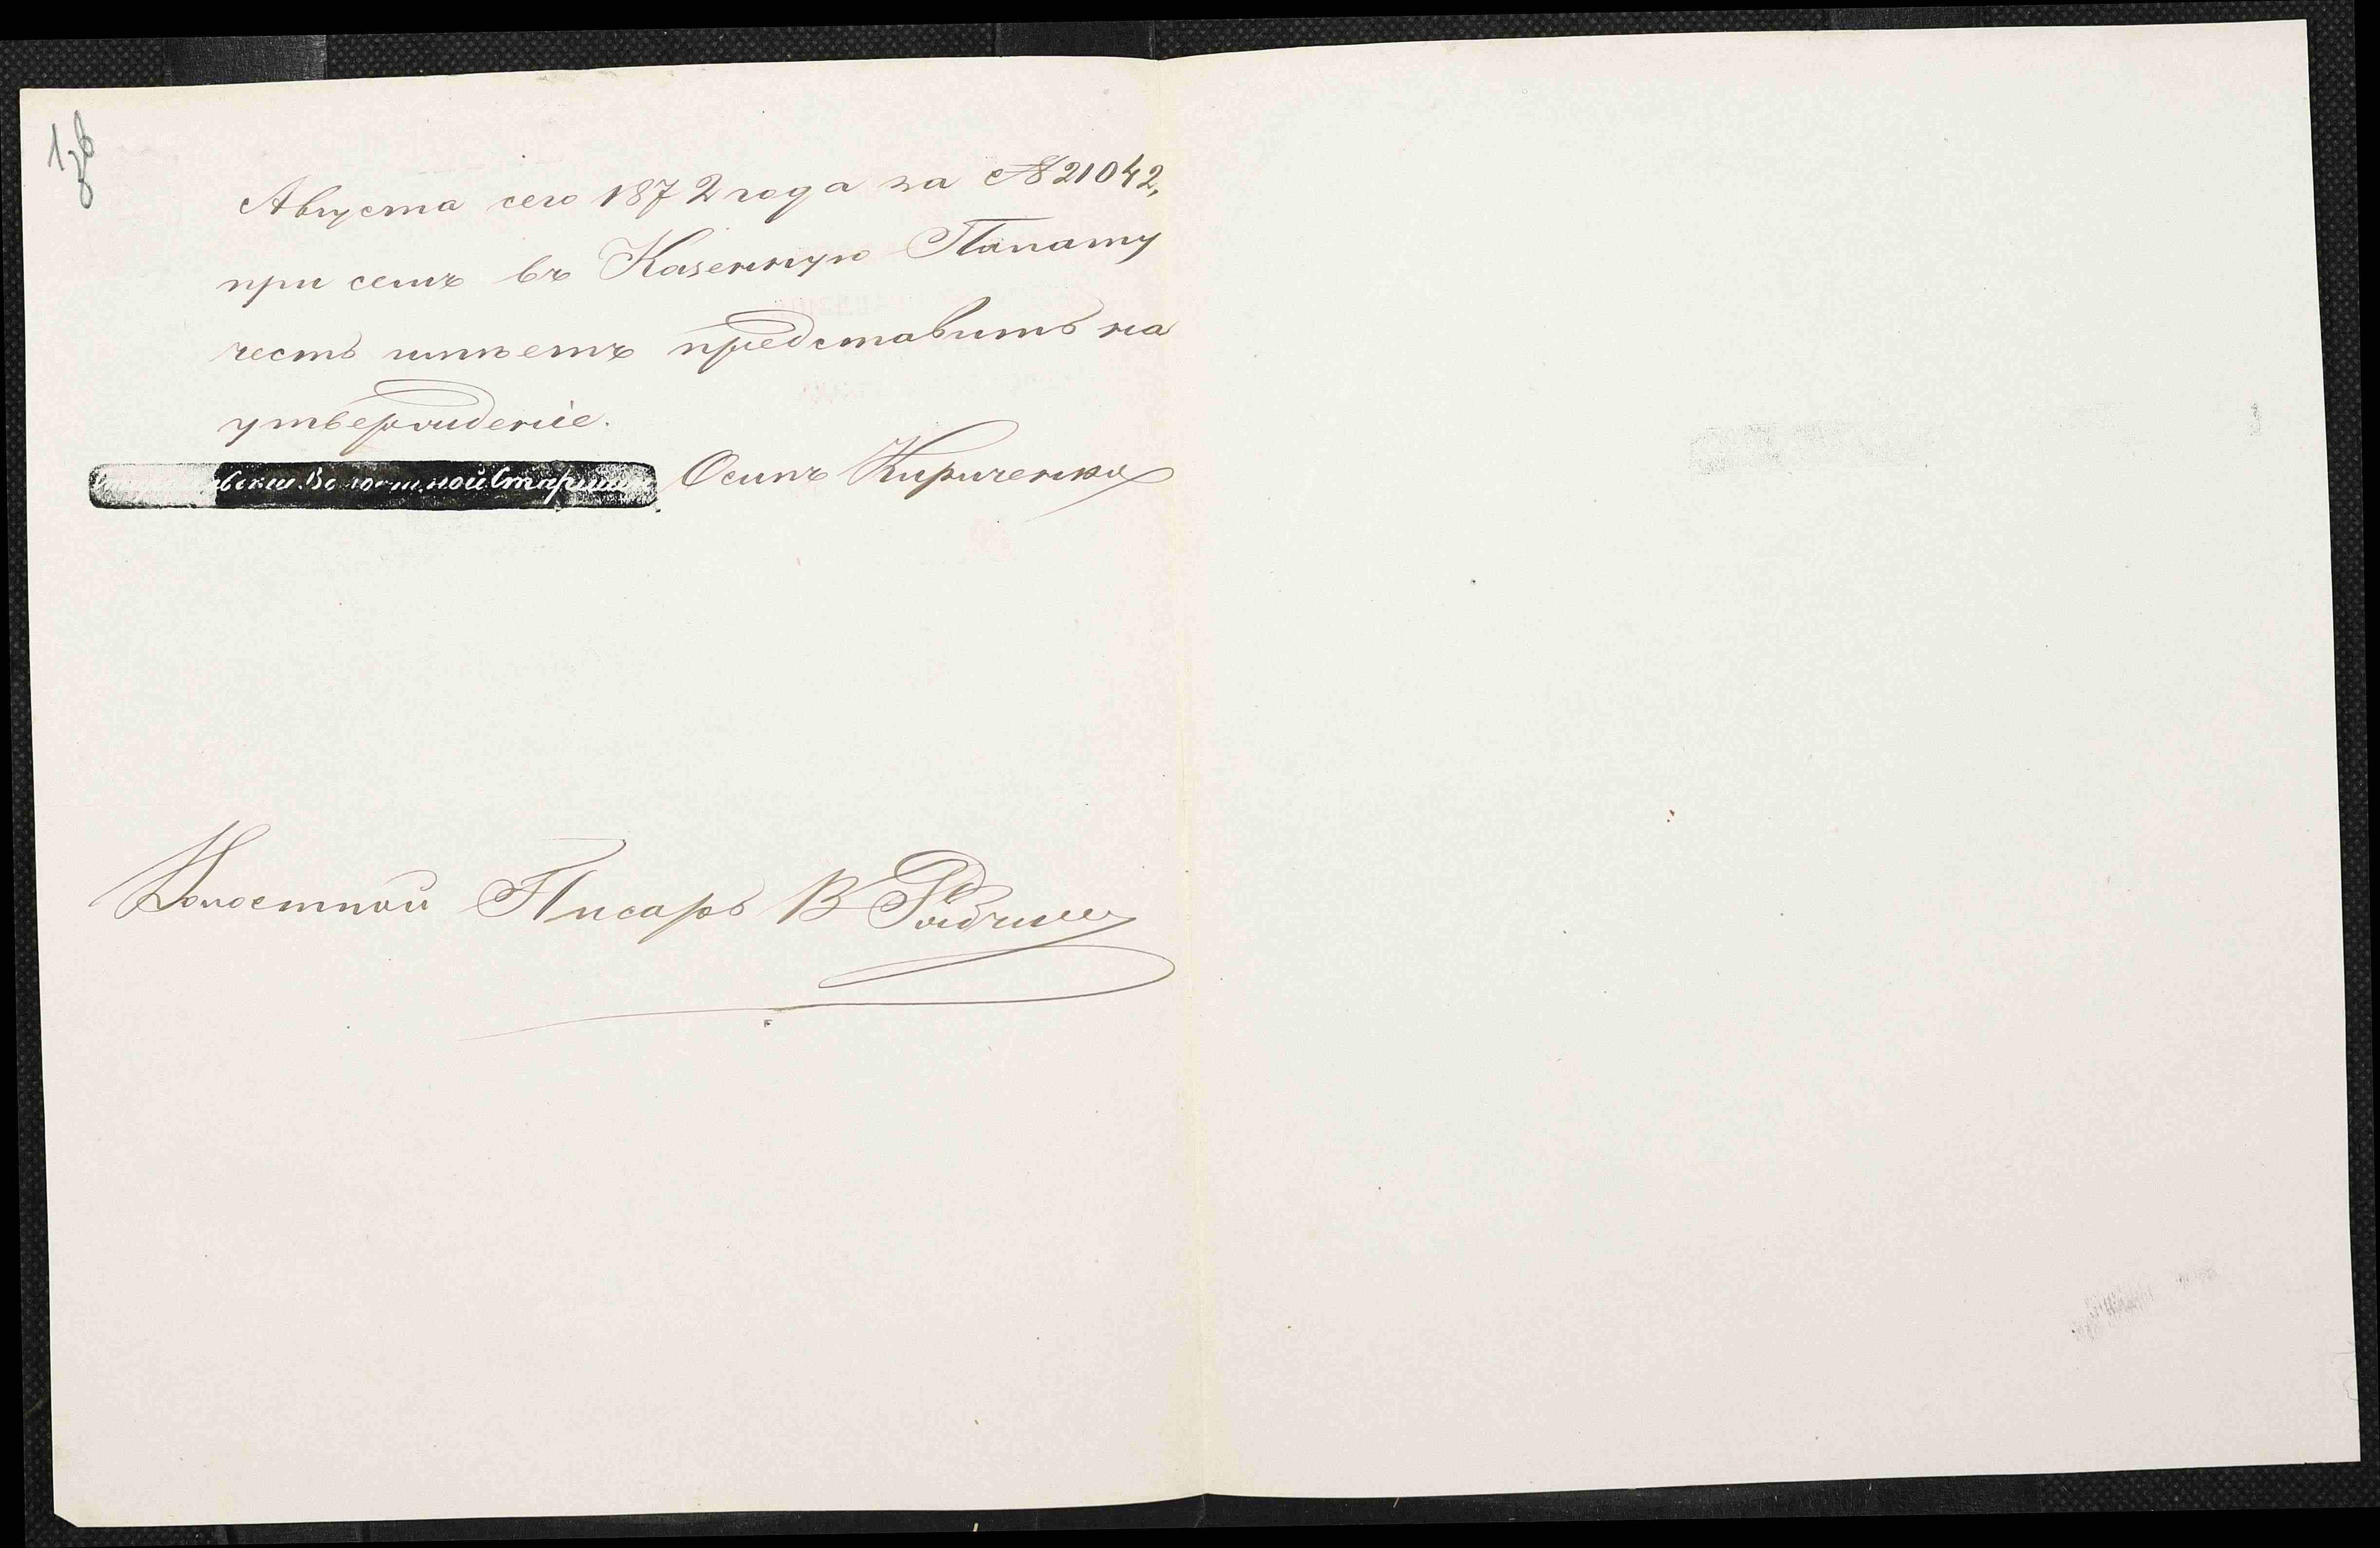 1зв
Августа сего 1872 года за № 21042,
при семъ въ Казенную Палату
честь имѣетъ представить на
утвержденіе.
Волостной Старшина Осипъ Кириченко
Волостной Писарь В